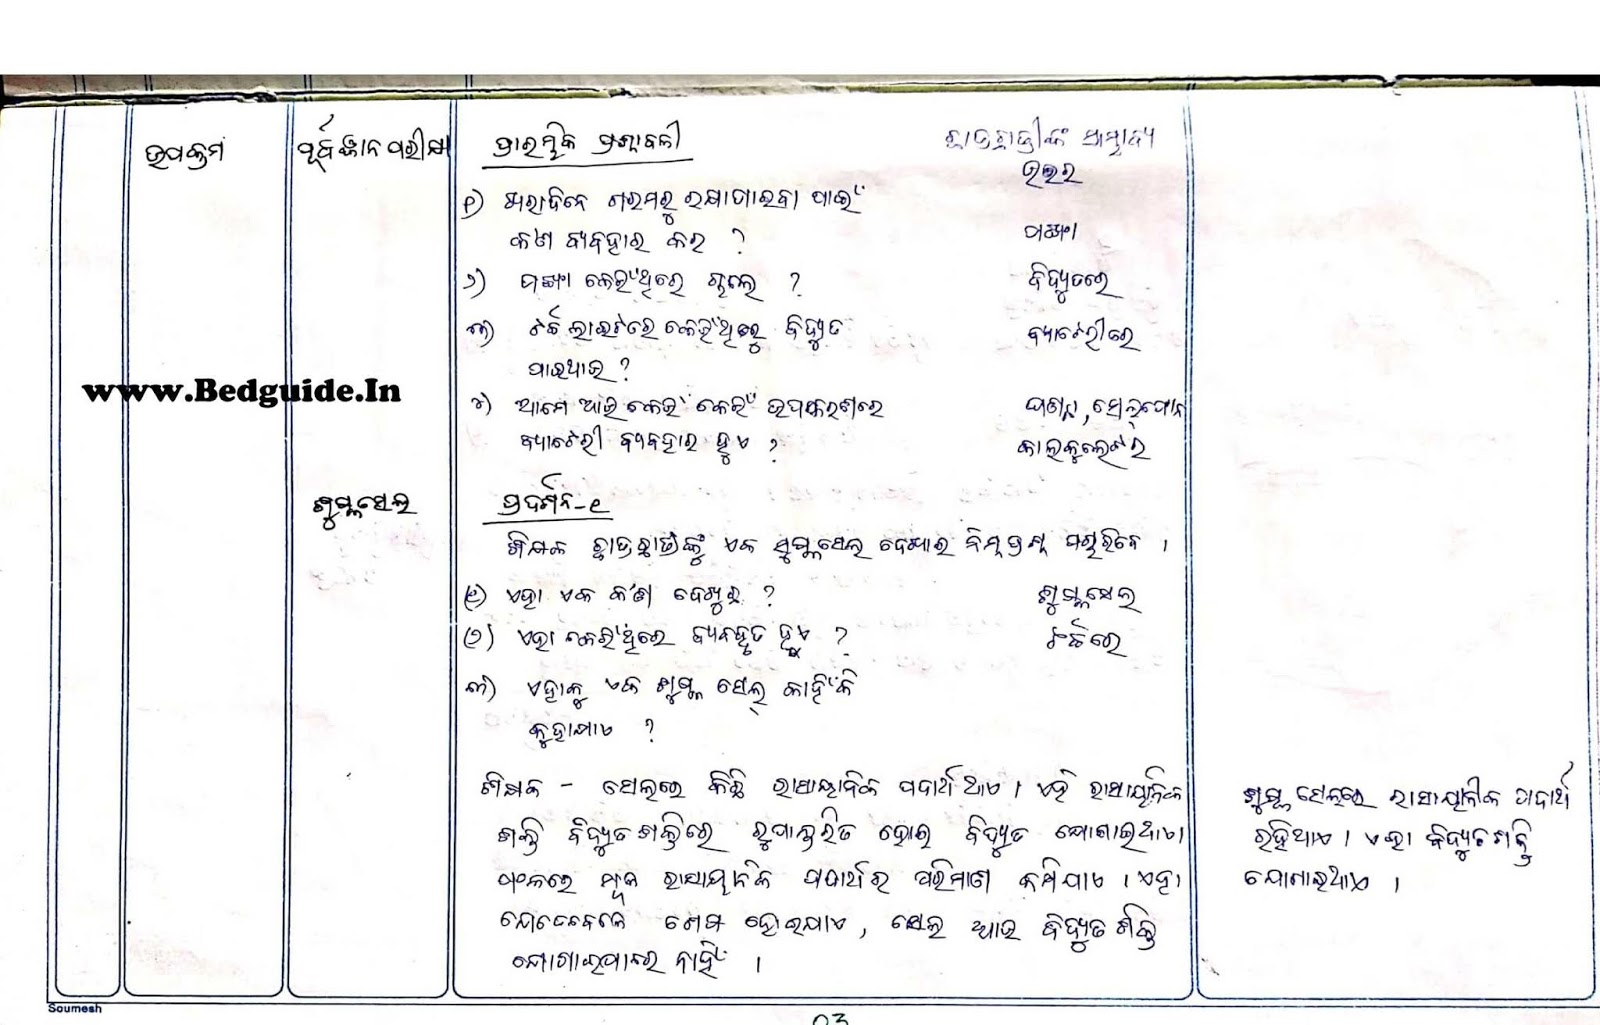 ଉପକ୍ରମ
ପୂର୍ବଜ୍ଞାନ ପରୀକ୍ଷା
ପ୍ରାରମ୍ଭିକ ପ୍ରଶ୍ନାବଳୀ
ଛାତ୍ରଛାତ୍ରୀଙ୍କ ସମ୍ଭାବ୍ୟ
ଉତ୍ତର
୧) ଖରାଦିନେ ଗରମରୁ ରକ୍ଷାପାଇବା ପାଇଁ
କ'ଣ ବ୍ୟବହାର କର ?
ପଙ୍ଖା
୨) ପଙ୍ଖା କେଉଁଥିରେ ଚାଲେ ?
ବିଦ୍ୟୁତରେ
୩) ଟର୍ଚ୍ଚ ଲାଇଟରେ କେଉଁଥିରୁ ବିଦ୍ୟୁତ
ପାଇଥାଉ ?
ବ୍ୟାଟେରୀରେ
www.Bedguide.In
୪) ଆମେ ଆଉ କେଉଁ କେଉଁ ଉପକରଣରେ
ବ୍ୟାଟେରୀ ବ୍ୟବହାର ହୁଏ ?
ଘଣ୍ଟା, ସେଲ୍‌ଫୋନ
କାଲକୁଲେଟର
ଶୁଷ୍କସେଲ
ପ୍ରଦର୍ଶନ-୧
ଶିକ୍ଷକ ଛାତ୍ରଛାତ୍ରୀଙ୍କୁ ଏକ ଶୁଷ୍କସେଲ ଦେଖାଇ ନିମ୍ନପ୍ରଶ୍ନ ପଚାରିବେ ।
(୧) ଏହା ଏକ କ'ଣ ଦେଖୁଛ ?
ଶୁଷ୍କସେଲ
(୨) ଏହା କେଉଁଥିରେ ବ୍ୟବହୃତ ହୁଏ ?
ଟର୍ଚ୍ଚରେ
୩) ଏହାକୁ ଏକ ଶୁଷ୍କ ସେଲ୍ କାହିଁକି
କୁହାଯାଏ ?
ଶିକ୍ଷକ - ସେଲରେ କିଛି ରାସାୟନିକ ପଦାର୍ଥ ଥାଏ । ଏହି ରାସାୟନିକ
ଶକ୍ତି ବିଦ୍ୟୁତ ଶକ୍ତିରେ ରୂପାନ୍ତରିତ ହୋଇ ବିଦ୍ୟୁତ ଯୋଗାଇଥାଏ।
ଫଳରେ ମୂଳ ରାସାୟନିକ ପଦାର୍ଥର ପରିମାଣ କମିଯାଏ । ଏହା
ଯେତେବେଳେ ଶେଷ ହୋଇଯାଏ, ସେଲ ଆଉ ବିଦ୍ୟୁତ ଶକ୍ତି
ଯୋଗାଇପାରେ ନାହିଁ ।
ଶୁଷ୍କ ସେଲରେ ରାସାୟନୀକ ପଦାର୍ଥ
ରହିଥାଏ । ଏହା ବିଦ୍ୟୁତ ଶକ୍ତି
ଯୋଗାଇଥାଏ ।
Soumesh
03